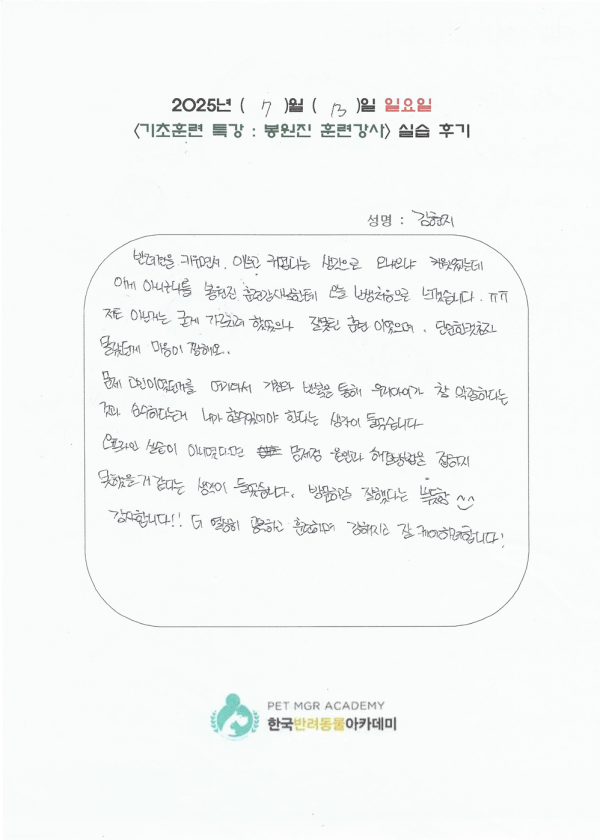 2025년 ( 7 )월 ( 13 )일 일요일
<기초훈련 특강 : 봉원진 훈련강사> 실습 후기
성명 : 김현지
반려견을 키우면서, 이쁘고 귀엽다는 생각으로 오냐오냐 키웠었는데
이게 아니구나를 봉원진 훈련강사님한테 오늘 난생처음으로 느꼈습니다. ㅠㅠ
저도 이년가는 굳게 가르치려 했었으나 잘못된 훈련 이었으며, 단호한 것조차
몰랐던게 마음이 짠해요.
문제 고민이었던거를 여기와서 거절과 반복을 통해 우리아이가 잘 악물하다는
것과 습수하다는거 내가 할수있어야 한다는 생각이 들었습니다
오프라인 실습이 아니었다면 문제점 원인과 해결방법을 접하지
못했을거 같다는 생각이 들었습니다. 방문하길 잘했다는 뿌듯함 ^^
감사합니다!! 더 열심히 공부하고 훈련하며 강해지고 잘 케어하려합니다!
PET MGR ACADEMY
한국반려동물아카데미